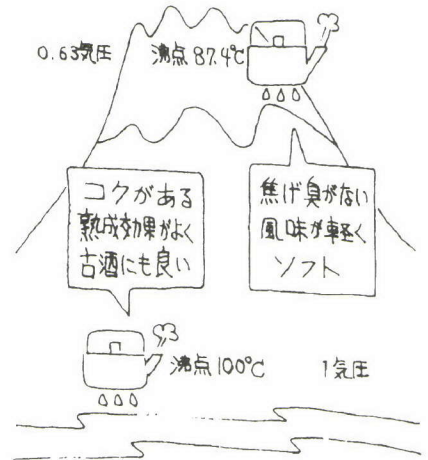 0.63気圧
沸点 87.4℃
コクがある
熟成効果がよく
古酒にも良い
焦げ臭がない
風味が軽く
ソフト
沸点 100℃
1気圧